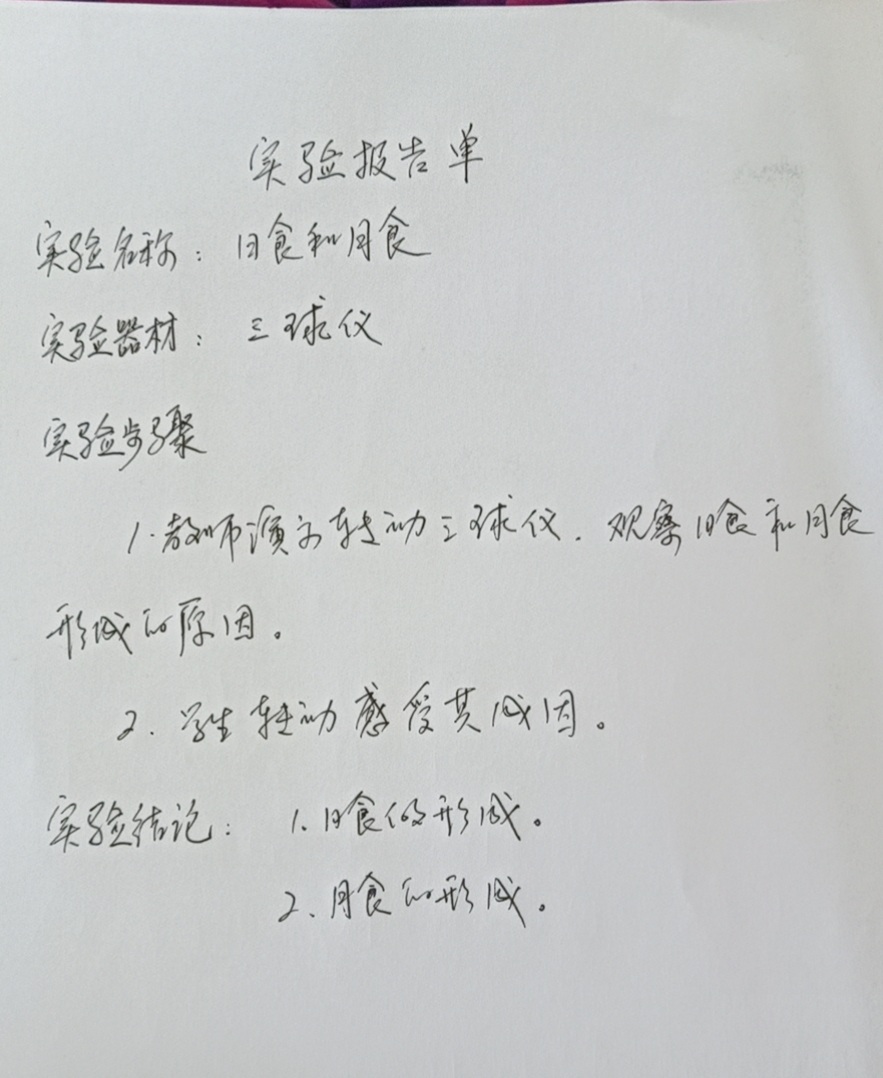 实验报告单
实验名称：日食和月食
实验器材：三球仪
实验步骤
1.教师演示转动三球仪.观察日食和月食
形成的原因。
2.学生转动感受其成因。
实验结论：1.日食的形成。
2.月食的形成。